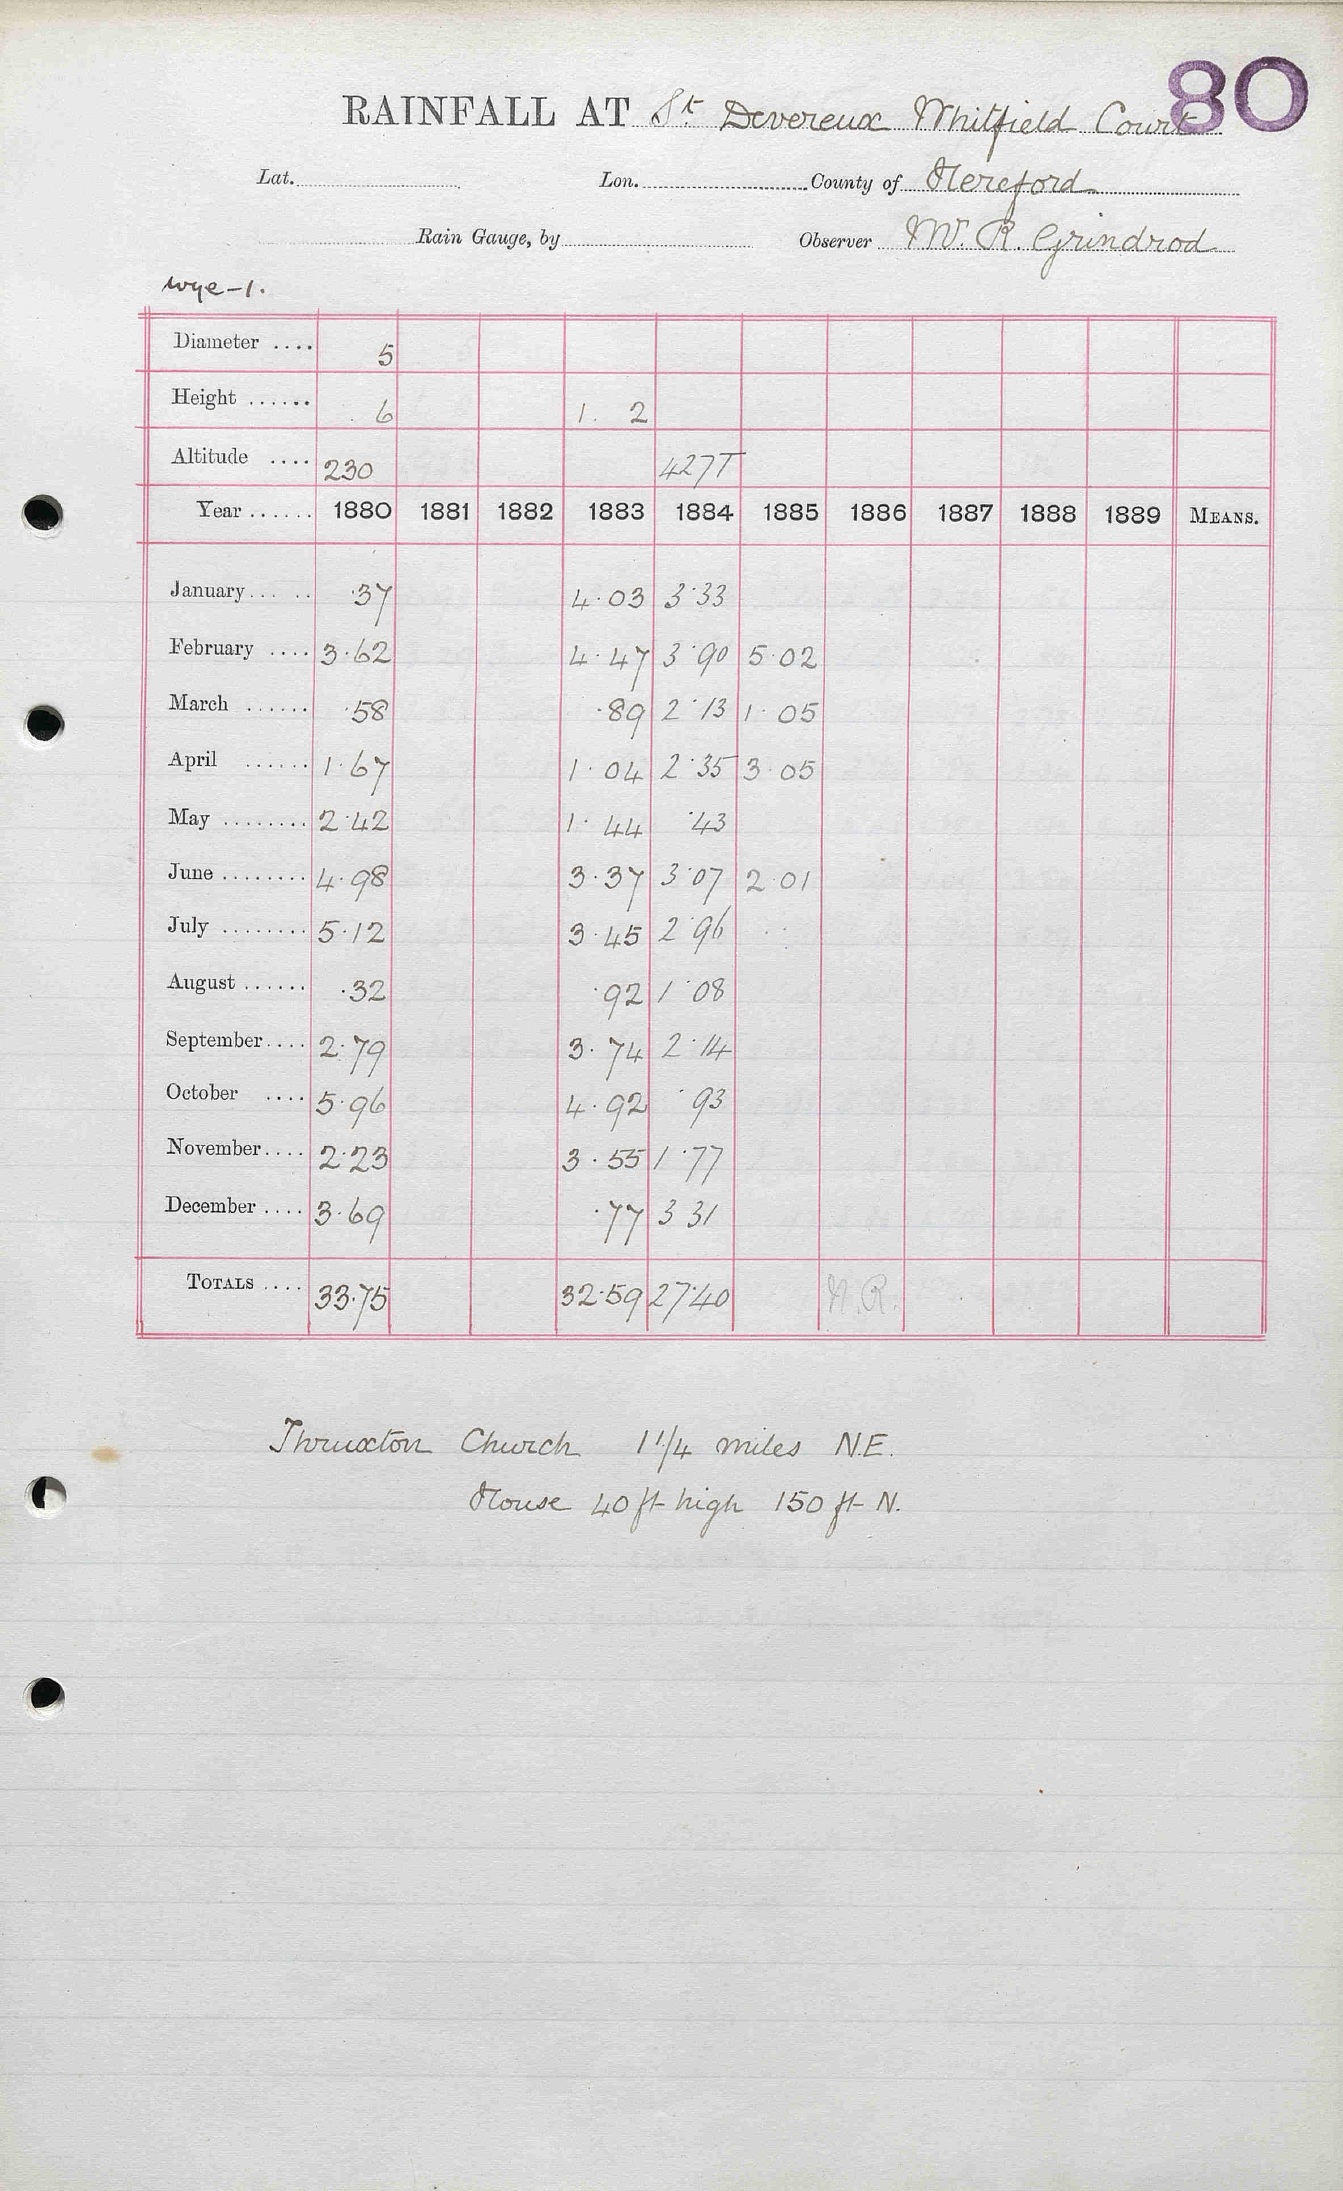 80
RAINFALL AT St Devereux Whitfield Court
Lat. Lon. County of Hereford
Rain Gauge, by Observer W. R. Grindrod
Wye-1.
Diameter .... 5
Height ...... 6 1. 2
Altitude .... 230 427T
Year ...... 1880 1881 1882 1883 1884 1885 1886 1887 1888 1889 MEANS.
January..... .37 4.03 3.33
February .... 3.62 4.47 3.90 5.02
March ...... .58 .89 2.13 1.05
April ...... 1.67 1.04 2.35 3.05
May ........ 2.42 1.44 .43
June ........ 4.98 3.37 3.07 2.01
July ........ 5.12 3.45 2.96
August ...... .32 .92 1.08
September.... 2.79 3.74 2.14
October .... 5.96 4.92 .93
November.... 2.23 3.55 1.77
December .... 3.69 .77 3 31
TOTALS .... 33.75 32.59 27.40 N.R.
Thruxton Church 1 1/4 miles N.E.
House 40 ft high 150 ft N.